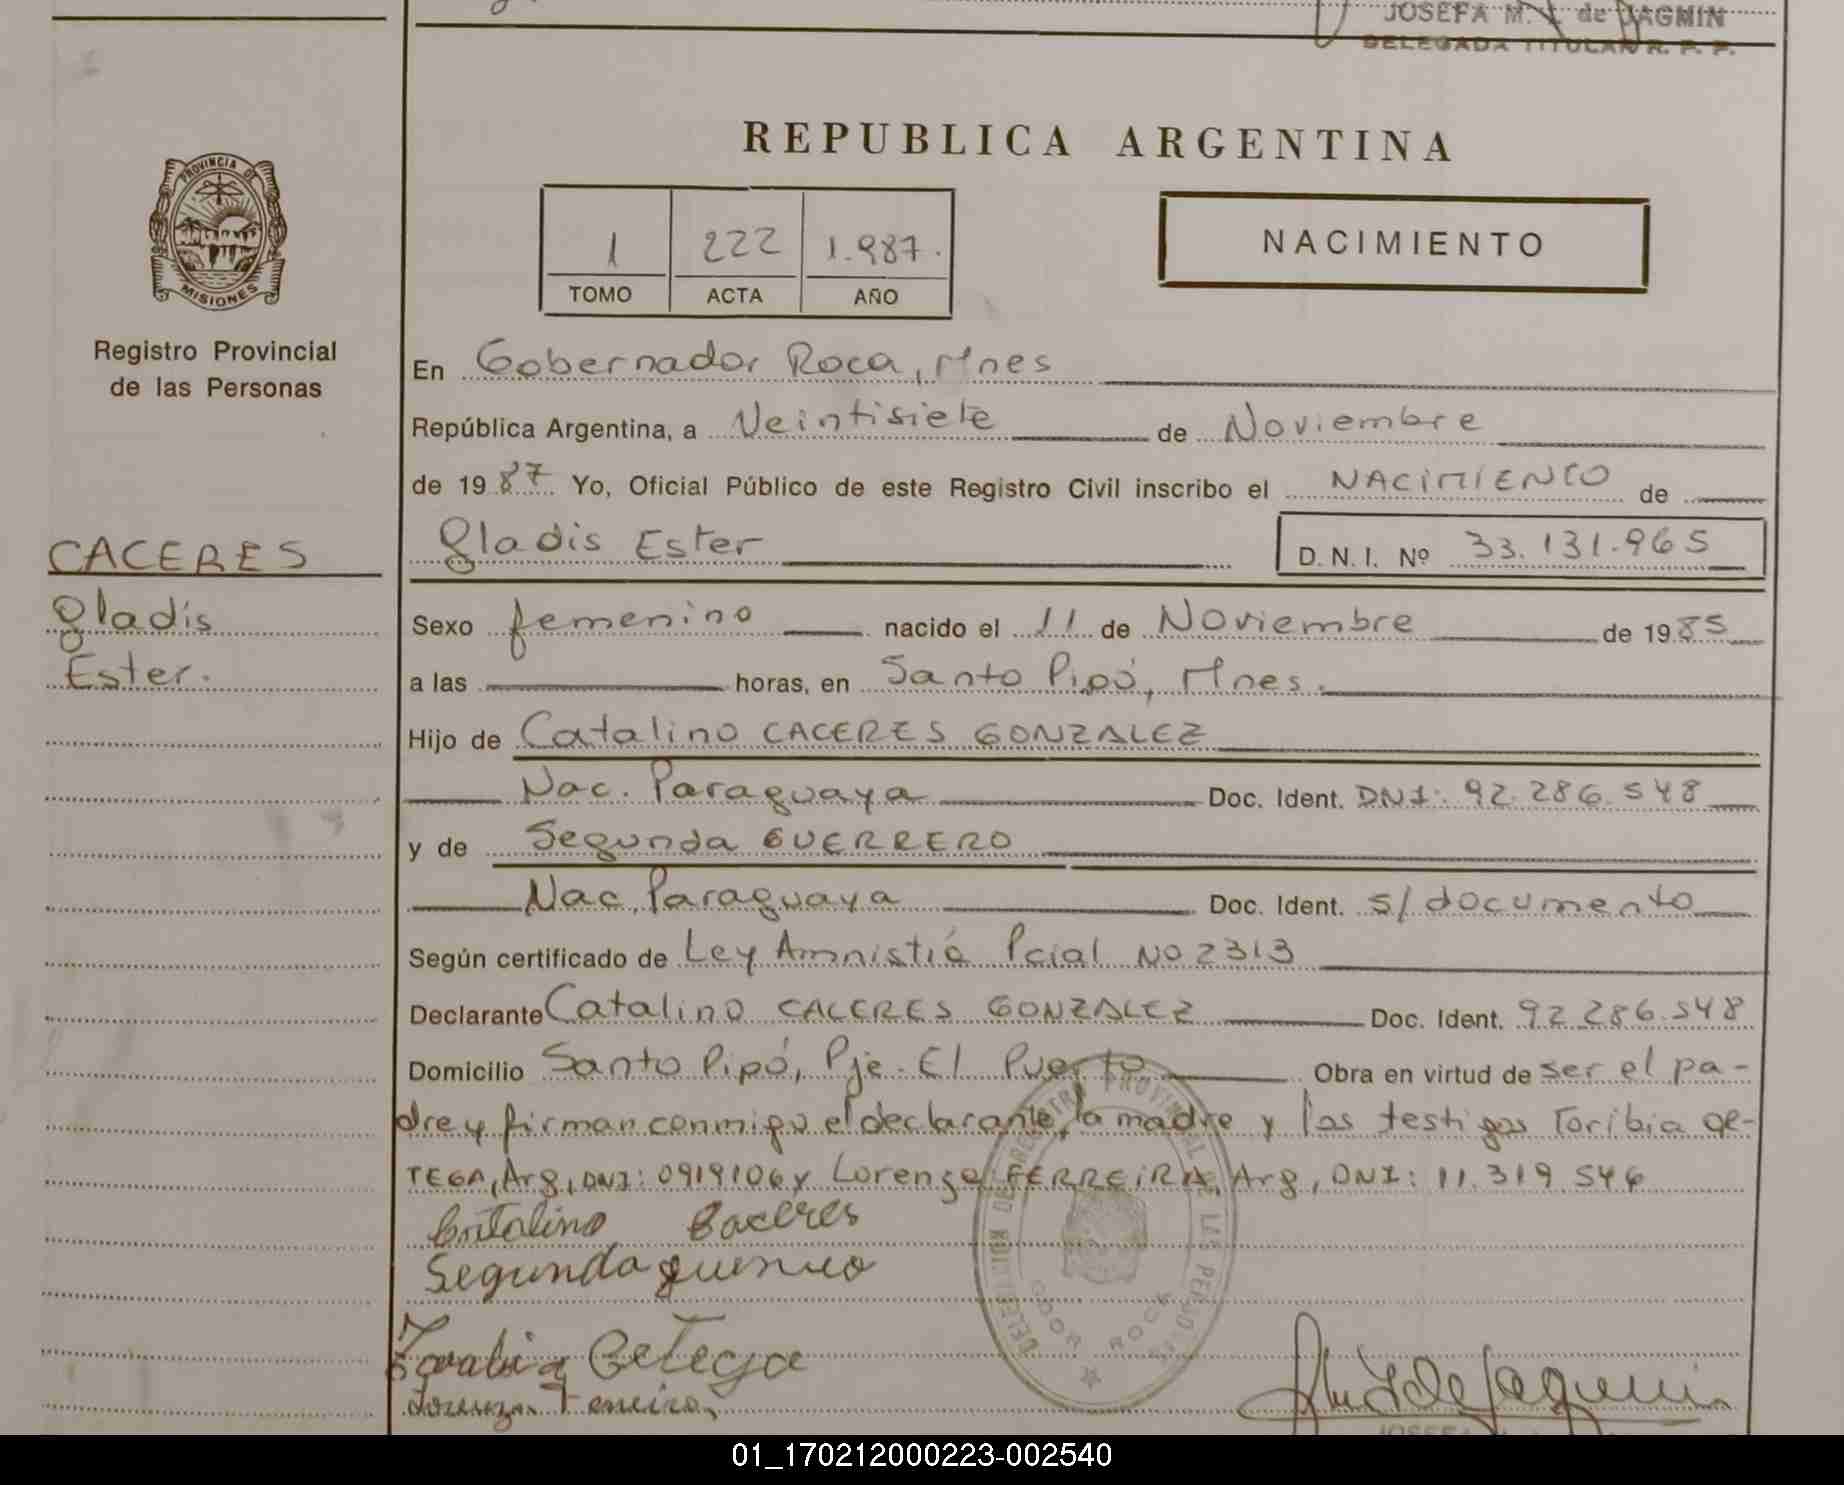 JOSEFA M. L. de JAGMIN
DELEGADA TITULAR R. P. P.
REPUBLICA ARGENTINA
PROVINCIA DE
MISIONES
Registro Provincial
de las Personas
1 222 1.987.
TOMO ACTA AÑO
NACIMIENTO
En Gobernador Roca, Mnes
República Argentina, a Veintisiete de Noviembre
de 1987 Yo, Oficial Público de este Registro Civil inscribo el NACIMIENTO de
Gladis Ester D.N.I. Nº 33.131.965
CACERES
Gladis
Ester.
Sexo femenino nacido el 11 de Noviembre de 1985
a las horas, en Santo Pipó, Mnes.
Hijo de Catalino CACERES GONZALEZ
Nac. Paraguaya Doc. Ident. DNI: 92.286.548
y de Segunda GUERRERO
Nac. Paraguaya Doc. Ident. s/documento
Según certificado de Ley Amnistía Pcial No 2313
Declarante Catalino CACERES GONZALEZ Doc. Ident. 92.286.548
Domicilio Santo Pipó, Pje. El Puerto Obra en virtud de ser el pa-
dre y firman conmigo el declarante, la madre y los testigos Toribia GE-
TEGA, Arg, DNI: 0919106 y Lorenzo FERREIRA, Arg, DNI: 11.319.546
Catalino Caceres
Segunda guerrero
DELEGACION DE REGISTRO PROVINCIAL DE LAS PERSONAS
GDOR ROCA
Toribia Getega
Lorenzo Ferreira
01_170212000223-002540